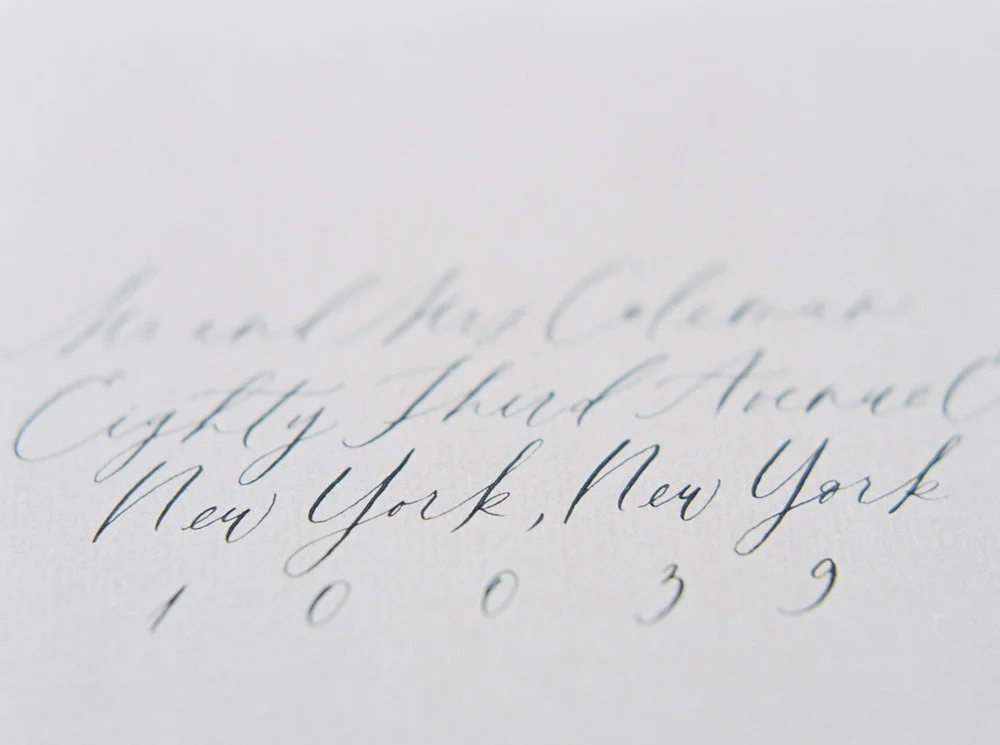 Mr and Mrs Coleman
Eighty Third Avenue
New York, New York
1 0 0 3 9